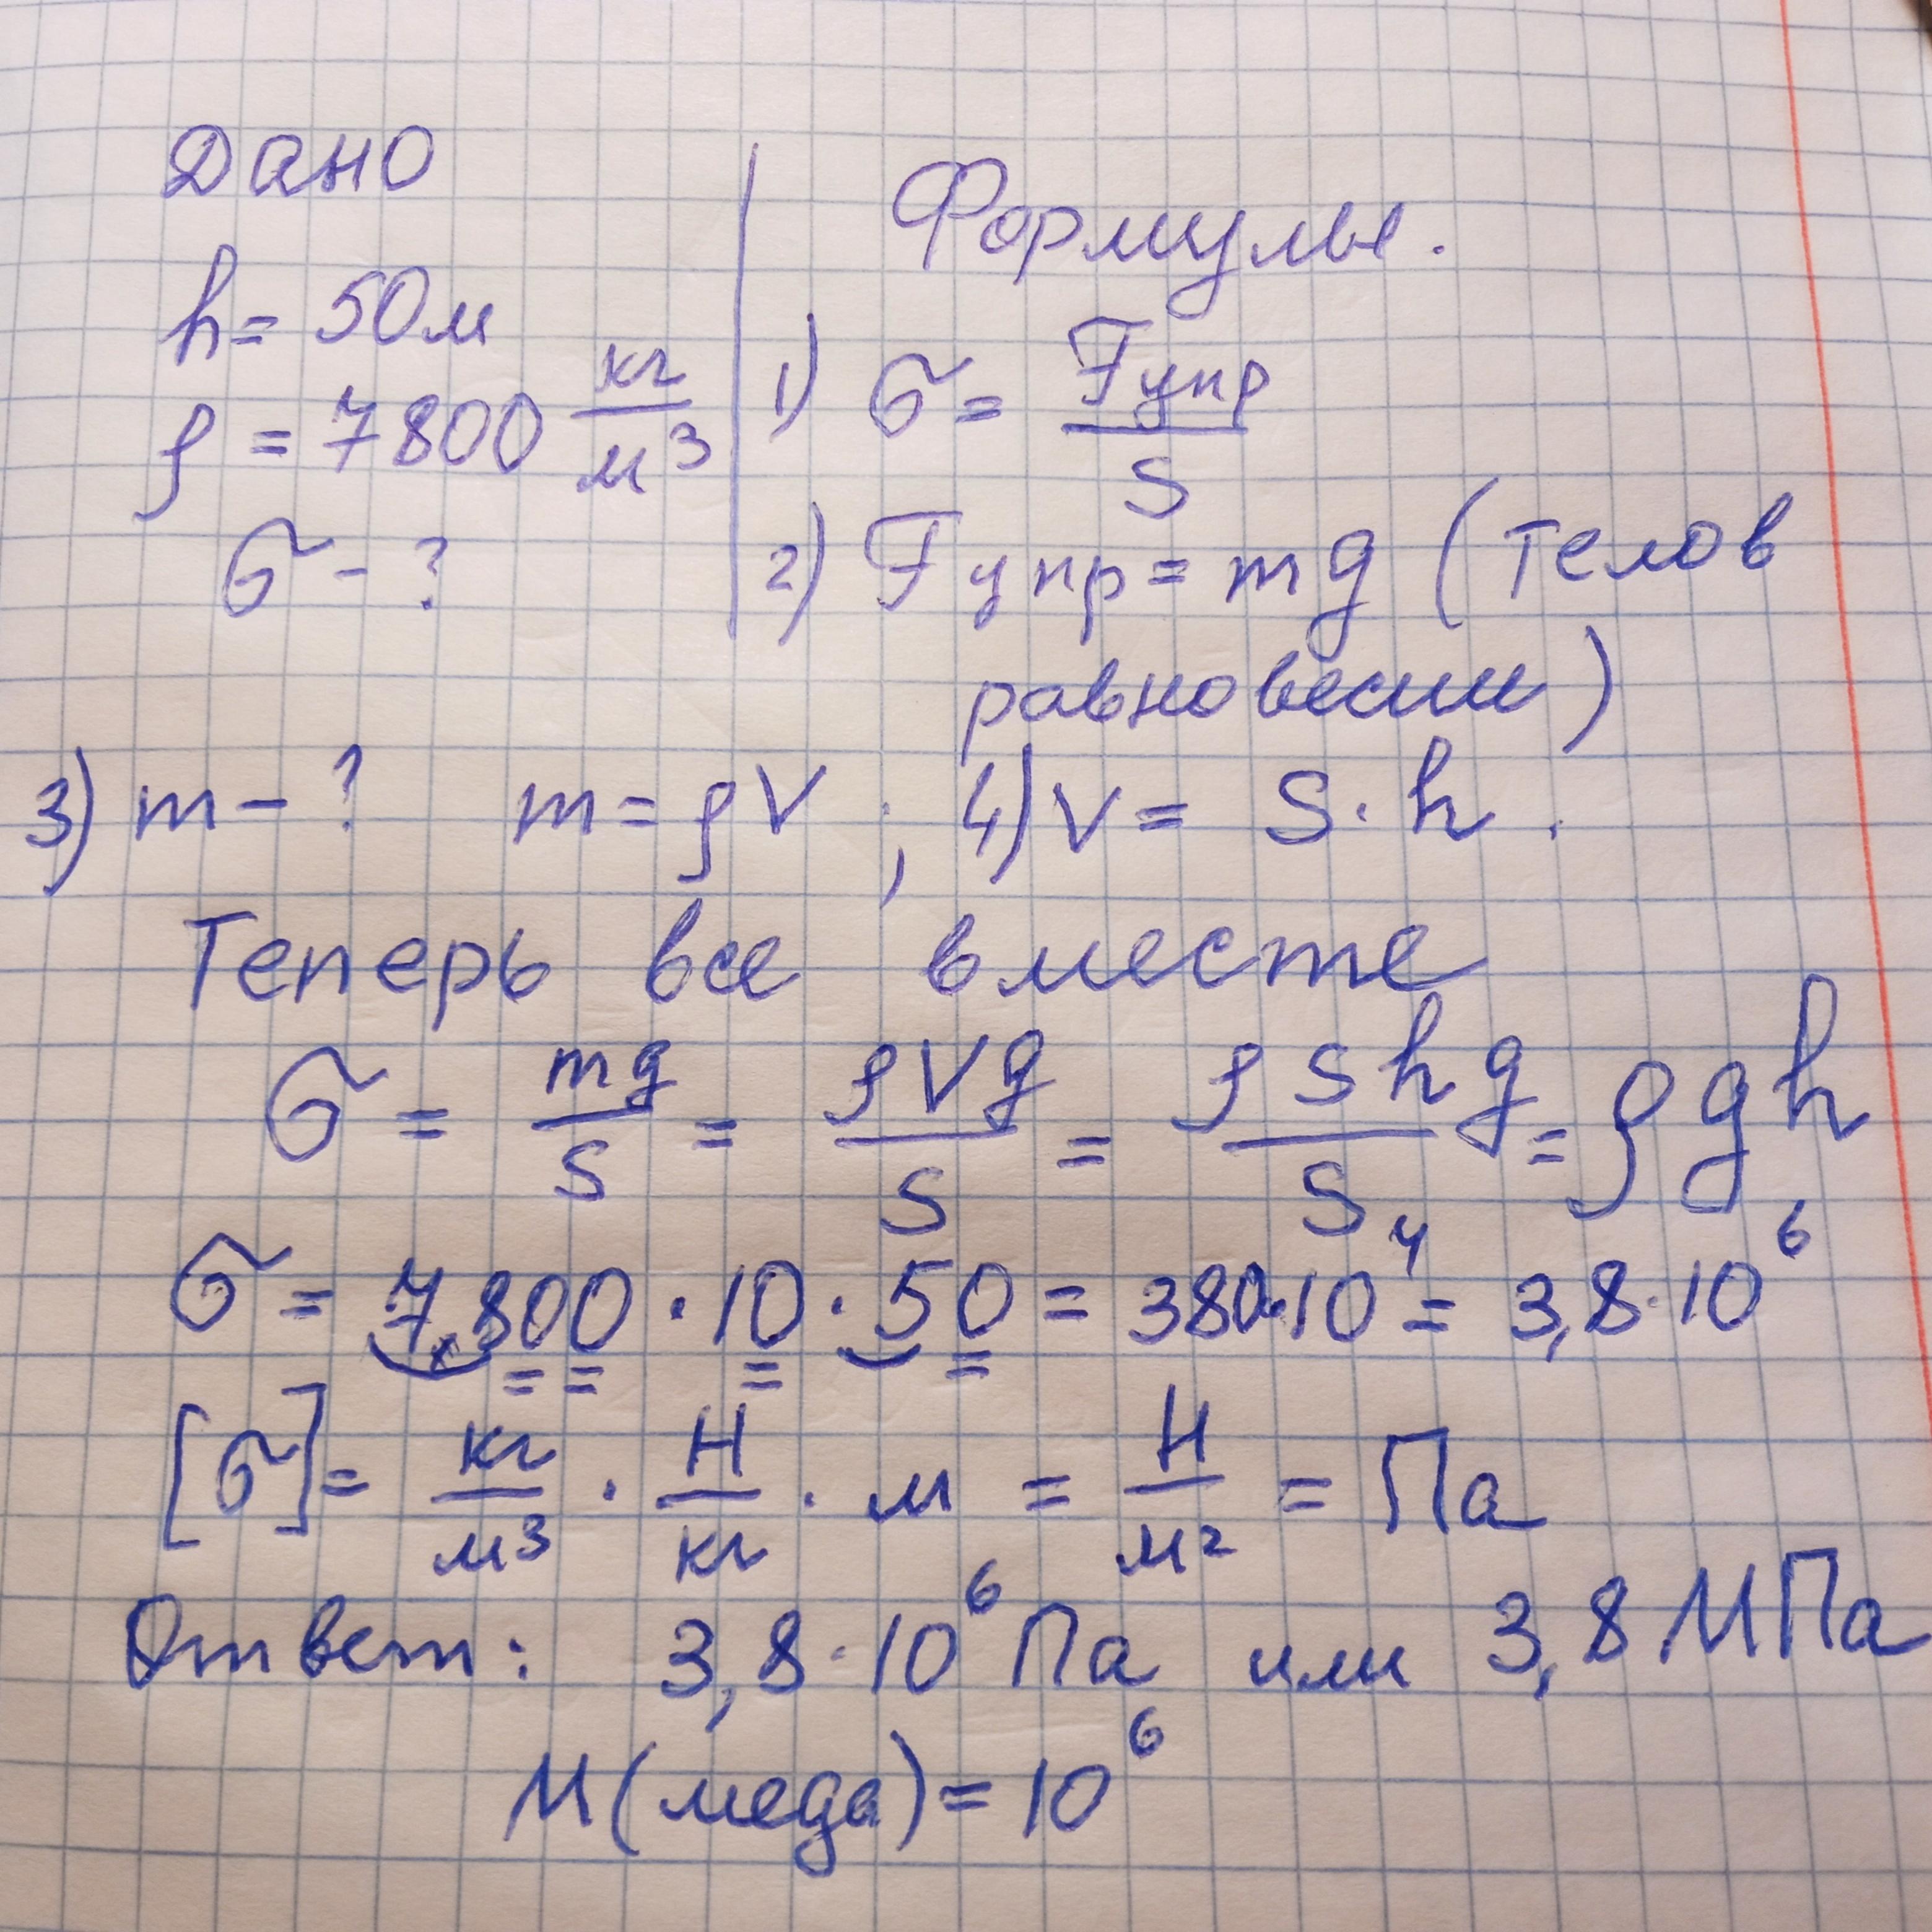 Дано
Формулы.
h = 50м
ρ = 7800 кг/м³
σ - ?
1) σ = Fупр/S
2) Fупр = mg (тело в
равновесии)
3) m - ? m = ρV ; 4) V = S · h .
Теперь все вместе
σ = mg/S = ρVg/S = ρShg/S = ρgh
σ = 7800 · 10 · 50 = 380 · 10⁴ = 3,8 · 10⁶
[σ] = кг/м³ · Н/кг · м = Н/м² = Па
Ответ: 3,8 · 10⁶ Па или 3,8 МПа
М (мега) = 10⁶